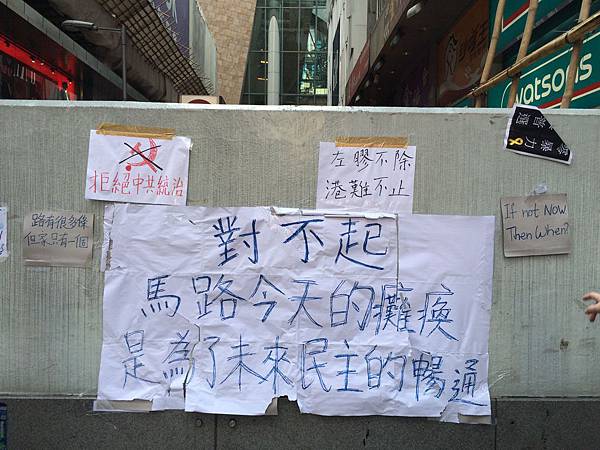 watsons
拒絕中共統治
左膠不除
港難不止
路有很多條
但家只有一個
If not NOW.
Then When?
對不起
馬路今天的癱瘓
是為了未來民主的暢通